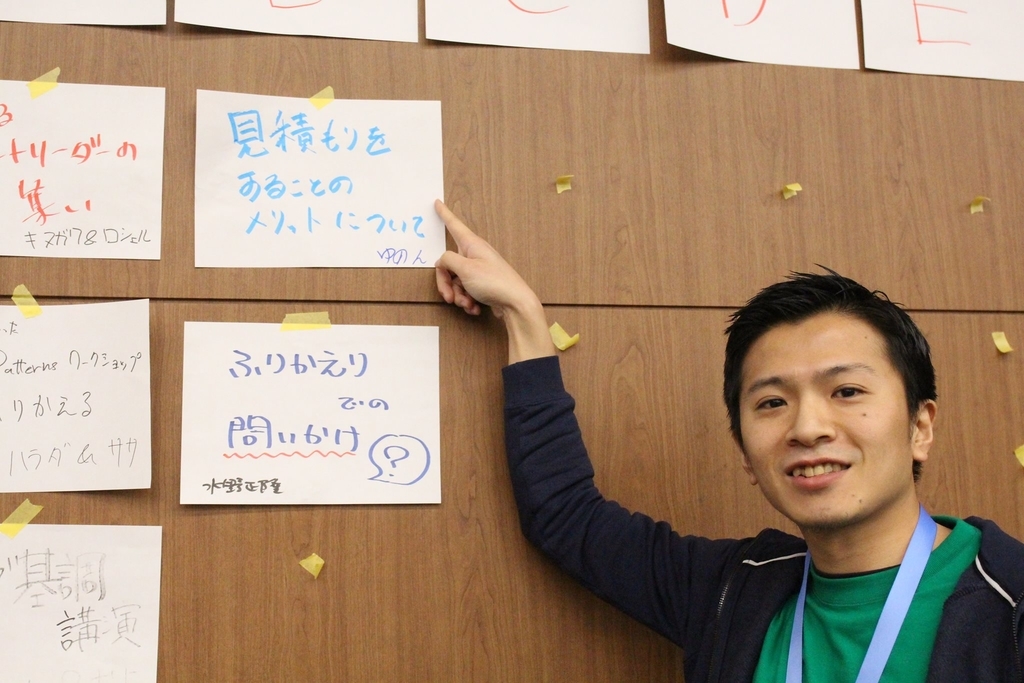 E
トリーダーの
集い
キヌガワ&ロシェル
見積もりを
あることの
メリットについて
ゆのん
Patterns ワークショップ
りかえる
ハラダ & ササ
ふりかえり
での
問いかけ
?
水野正隆
基調
講演